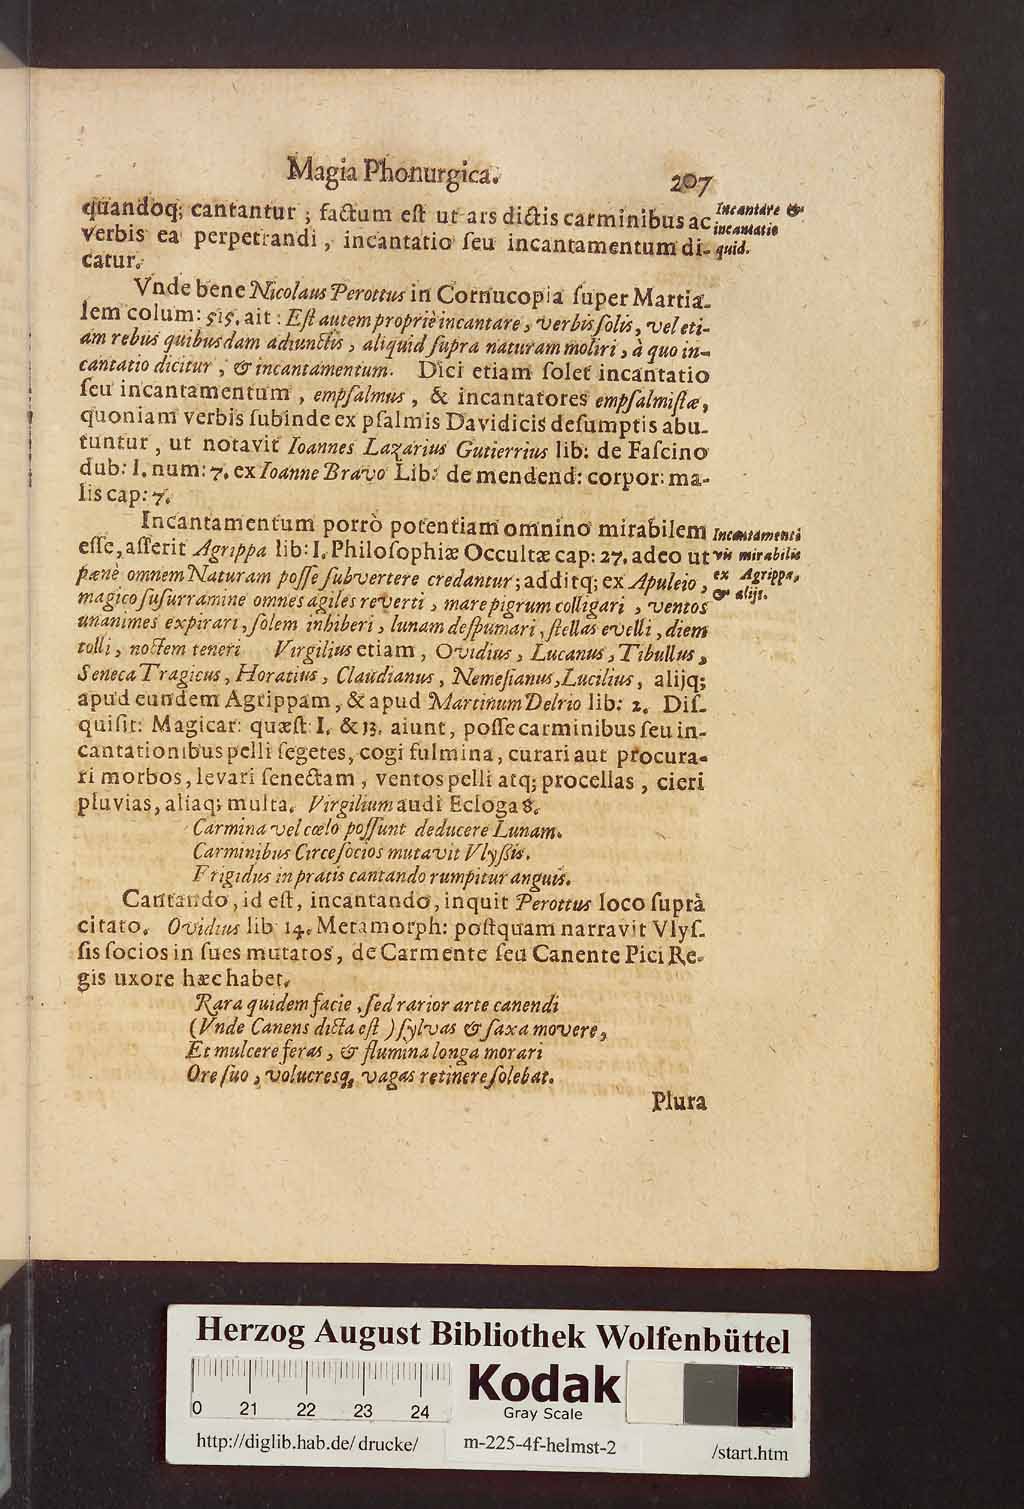 Magia Phonurgica. 207
quandoq; cantantur; factum est ut ars dictis carminibus ac
verbis ea perpetrandi, incantatio seu incantamentum di-
catur.
Incantare &
incantatio
quid.
Vnde bene Nicolaus Perottus in Cornucopia super Martia-
lem colum: 515. ait: Est autem propriè incantare, verbis solis, vel eti-
am rebus quibusdam adiunctis, aliquid supra naturam moliri, à quo in-
cantatio dicitur, & incantamentum. Dici etiam solet incantatio
seu incantamentum, empsalmus, & incantatores empsalmistæ,
quoniam verbis subinde ex psalmis Davidicis desumptis abu-
tuntur, ut notavit Ioannes Lazarius Gutierrius lib: de Fascino
dub: 1. num: 7. ex Ioanne Bravo Lib: de mendend: corpor: ma-
lis cap: 7.
Incantamentum porrò potentiam omnino mirabilem
esse, asserit Agrippa lib: 1. Philosophiæ Occultæ cap: 27. adeo ut
pænè omnem Naturam posse subvertere credantur; additq; ex Apuleio,
magico susurramine omnes agiles reverti, mare pigrum colligari, ventos
unanimes expirari, solem inhiberi, lunam despumari, stellas evelli, diem
tolli, noctem teneri Virgilius etiam, Ovidius, Lucanus, Tibullus,
Seneca Tragicus, Horatius, Claudianus, Nemesianus, Lucilius, alijq;
apud eundem Agrippam, & apud Martinum Delrio lib: 2. Dis-
quisit: Magicar: quæst: 1. & 13. aiunt, posse carminibus seu in-
cantationibus pelli segetes, cogi fulmina, curari aut procura-
ri morbos, levari senectam, ventos pelli atq; procellas, cieri
pluvias, aliaq; multa. Virgilium audi Ecloga 8.
Incantamenti
vis mirabilis
ex Agrippa,
& alijs.
Carmina vel cœlo possunt deducere Lunam.
Carminibus Circe socios mutavit Vlyßis.
Frigidus in pratis cantando rumpitur anguis.
Cantando, id est, incantando, inquit Perottus loco suprà
citato. Ovidius lib 14. Metamorph: postquam narravit Vlys-
sis socios in sues mutatos, de Carmente seu Canente Pici Re-
gis uxore hæc habet.
Rara quidem facie, sed rarior arte canendi
(Vnde Canens dicta est) sylvas & saxa movere,
Et mulcere feras, & flumina longa morari
Ore suo, volucresq; vagas retinere solebat.
Plura
Herzog August Bibliothek Wolfenbüttel
0 21 22 23 24
Kodak
Gray Scale
http://diglib.hab.de/drucke/ m-225-4f-helmst-2 /start.htm